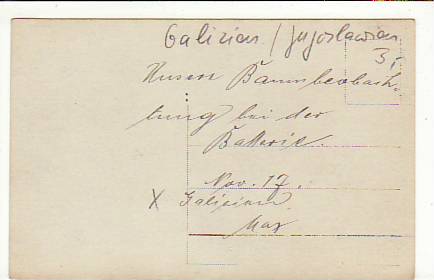 Galizien / Jugoslawien
3,-
Unsere Baumbeobach-
tung bei der
Batterie.
Nov. 17.
X Galizien
Max